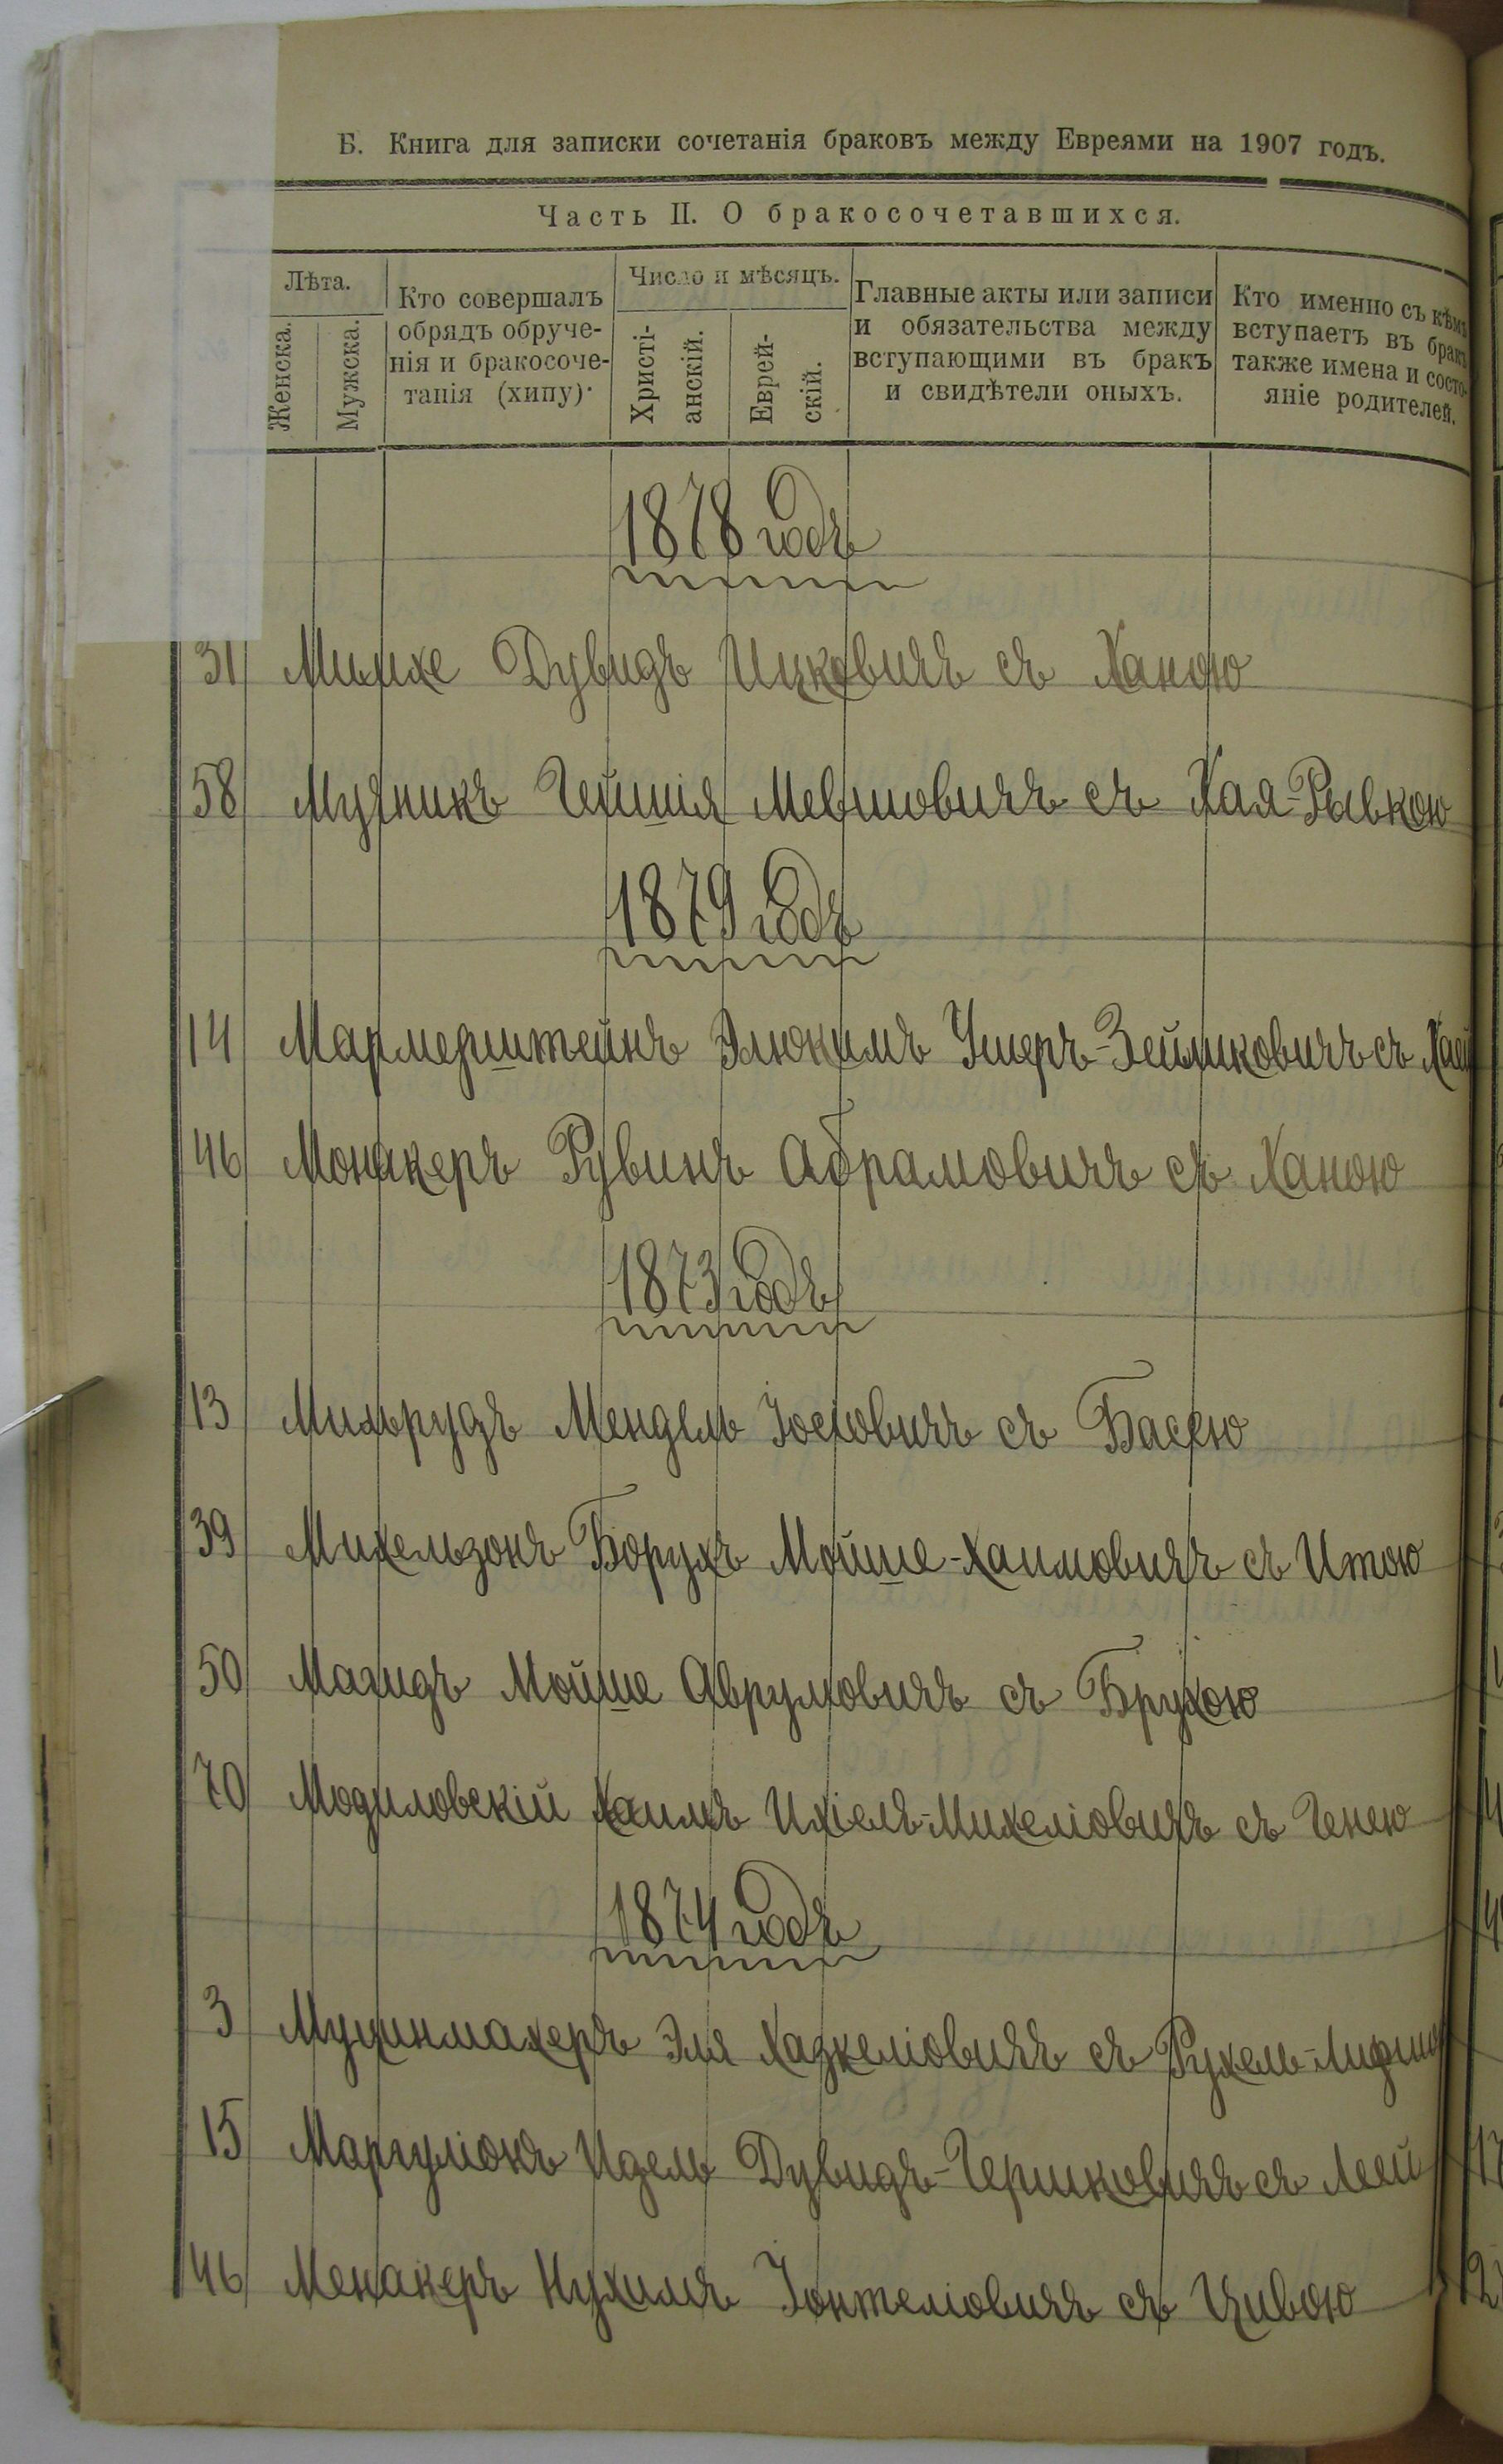 Б. Книга для записки сочетанія браковъ между Евреями на 1907 годъ.
Часть II. О бракосочетавшихся.
Лѣта.
Женска.
Мужска.
Кто совершалъ
обрядъ обруче-
нія и бракосоче-
танія (хипу).
Число и мѣсяцъ.
Христі-
анскій.
Еврей-
скій.
Главные акты или записи
и обязательства между
вступающими въ бракъ
и свидѣтели оныхъ.
Кто именно съ кѣмъ
вступаетъ въ бракъ
также имена и состо-
яніе родителей.
1878 годъ
31 Милихе Дувидъ Ицковичъ съ Ханою
58 Мучникъ Гейшія Мевшовичъ съ Хая-Рывкою
1879 годъ
14 Мармерштейнъ Элюкимъ Ушеръ-Зейликовичъ съ Хаей
46 Монакеръ Рувинъ Абрамовичъ съ Ханою
1873 годъ
13 Мильрудъ Мендель Іосіовичъ съ Басею
39 Михельзонъ Борухъ Мойше-Хаимовичъ съ Итою
50 Магидъ Мойше Аврумовичъ съ Брухою
70 Модиловскій Хаимъ Ихіелъ-Михеліовичъ съ Генею
1874 годъ
3 Муцинмахеръ Эля Хазкеліовичъ съ Рухель-
15 Маргуліонъ Идель Дувидъ-Гершковичъ съ Леей
46 Менакеръ Нухимъ Іонтеліовичъ съ Цивою